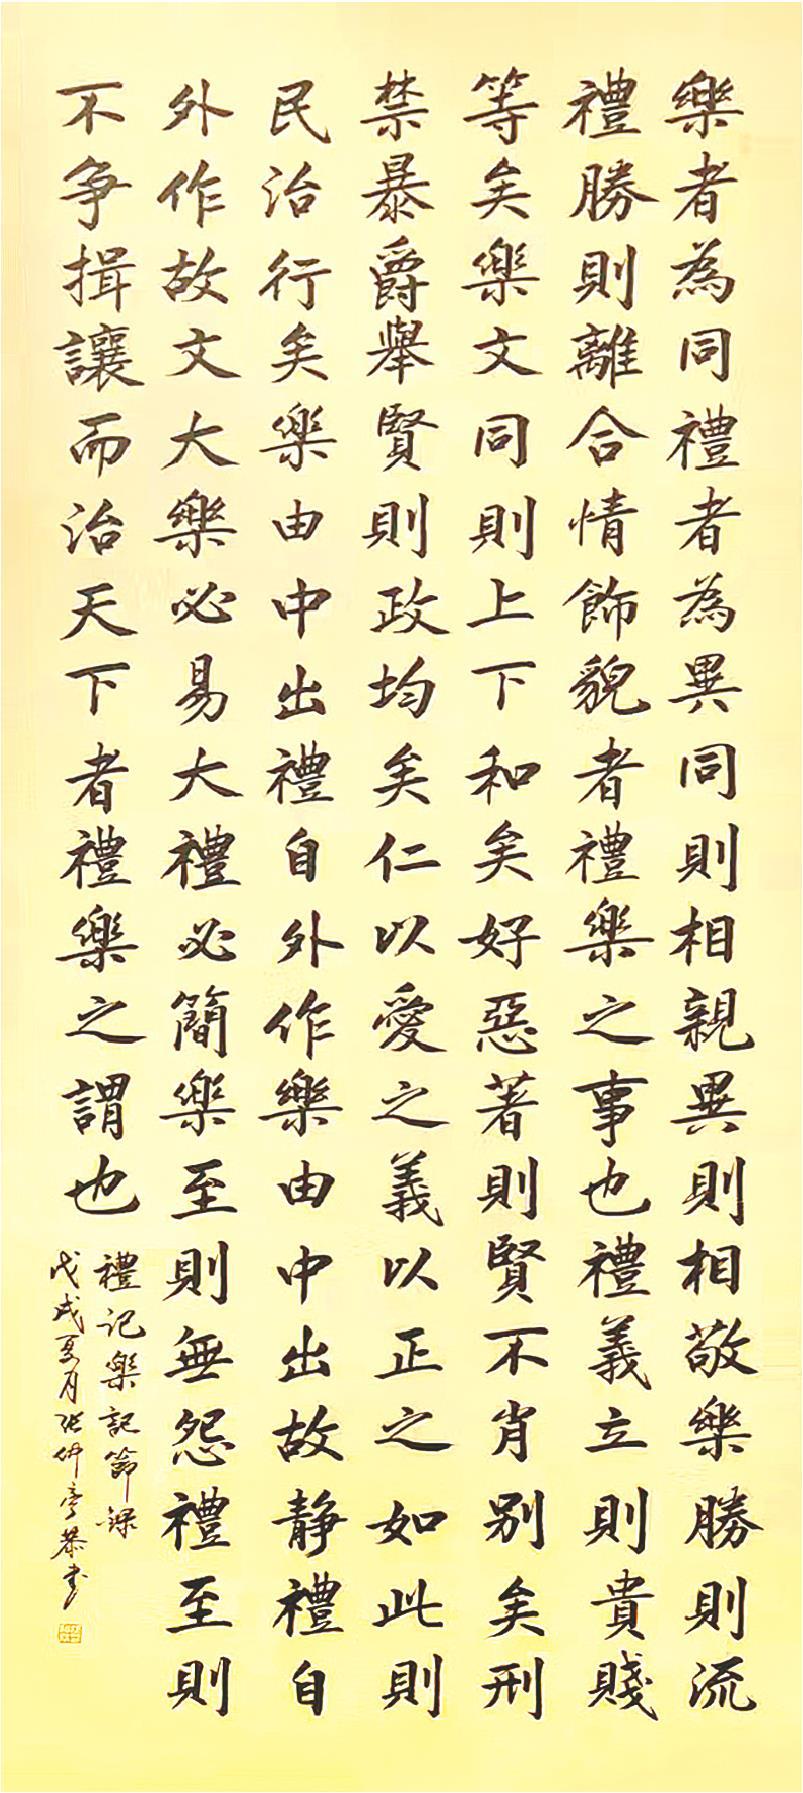 樂者為同禮者為異同則相親異則相敬樂勝則流
禮勝則離合情飾貌者禮樂之事也禮義立則貴賤
等矣樂文同則上下和矣好惡著則賢不肖別矣刑
禁暴爵舉賢則政均矣仁以愛之義以正之如此則
民治行矣樂由中出禮自外作樂由中出故靜禮自
外作故文大樂必易大禮必簡樂至則無怨禮至則
不争揖讓而治天下者禮樂之謂也
禮记樂記節録
戊戌夏月張仲亭恭書